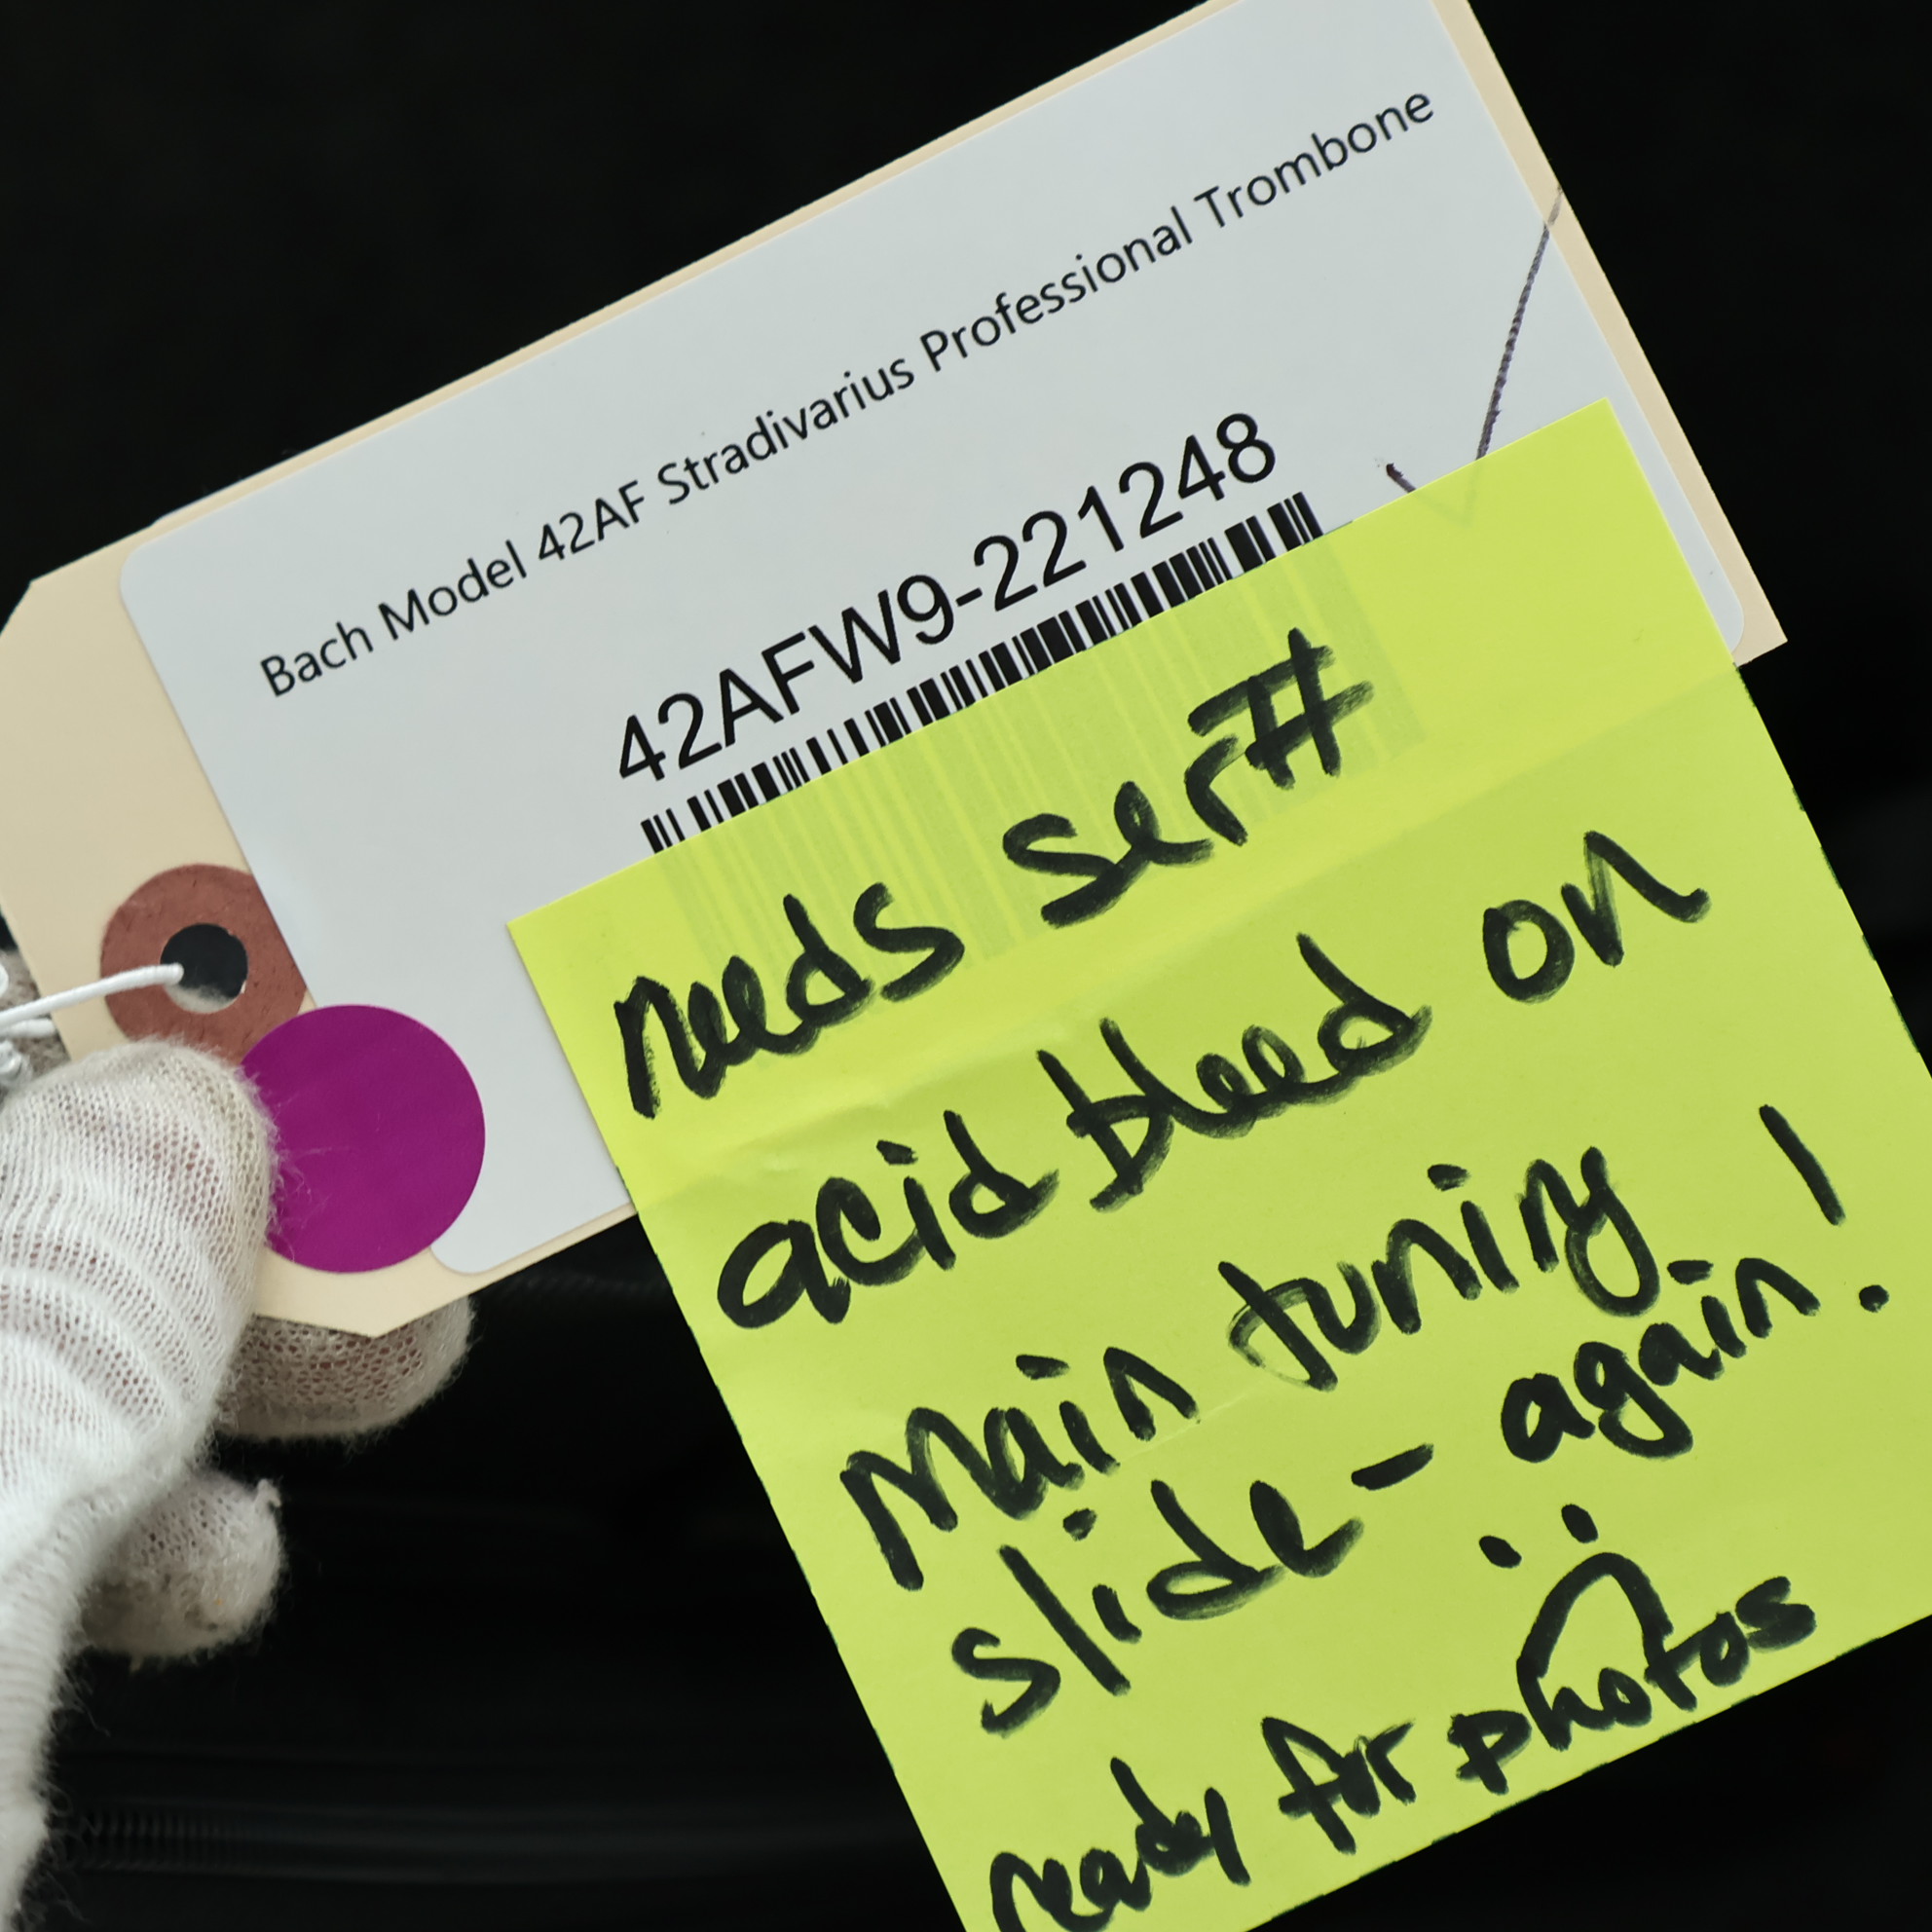 Bach Model 42AF Stradivarius Professional Trombone
42AFW9-221248
needs ser#
acid bleed on
main tuning
slide - again!
ready for photos